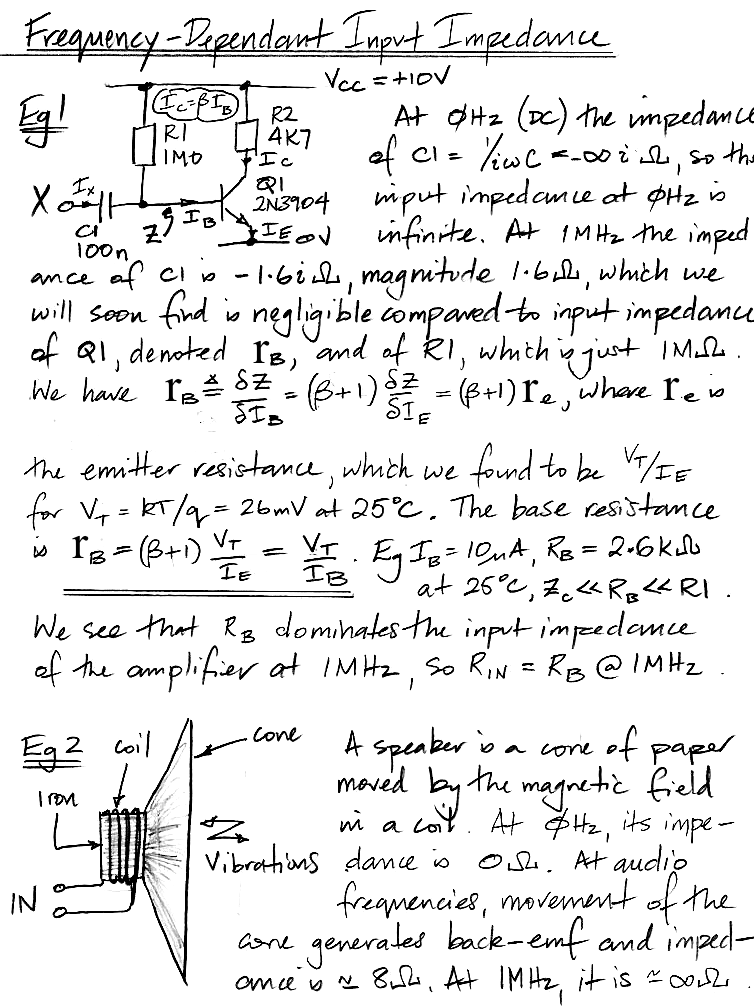 Frequency-Dependant Input Impedance
Eg1
Vcc = +10V
Ic=βIB
R1
1M0
R2
4K7
Ic
X
Ix
C1
100n
Z
IB
Q1
2N3904
IE
0V
At 0Hz (DC) the impedance
of C1 = 1/iωC = -∞i Ω, so the
input impedance at 0Hz is
infinite. At 1MHz the imped
ance of C1 is -1.6iΩ, magnitude 1.6Ω, which we
will soon find is negligible compared to input impedance
of Q1, denoted rB, and of R1, which is just 1MΩ.
We have rB ≜ δZ/δIB = (β+1) δZ/δIE = (β+1) re, where re is
the emitter resistance, which we found to be VT/IE
for VT = kT/q = 26mV at 25°C. The base resistance
is rB = (β+1) VT/IE = VT/IB. Eg IB = 10μA, RB = 2.6kΩ
at 25°C, Zc << RB << R1.
We see that RB dominates the input impedance
of the amplifier at 1MHz, so RIN = RB @ 1MHz.
Eg2
coil
cone
Iron
IN
Vibrations
A speaker is a cone of paper
moved by the magnetic field
in a coil. At 0Hz, its impe-
dance is 0Ω. At audio
frequencies, movement of the
cone generates back-emf and imped-
ance is ≃ 8Ω. At 1MHz, it is ≃ ∞Ω.